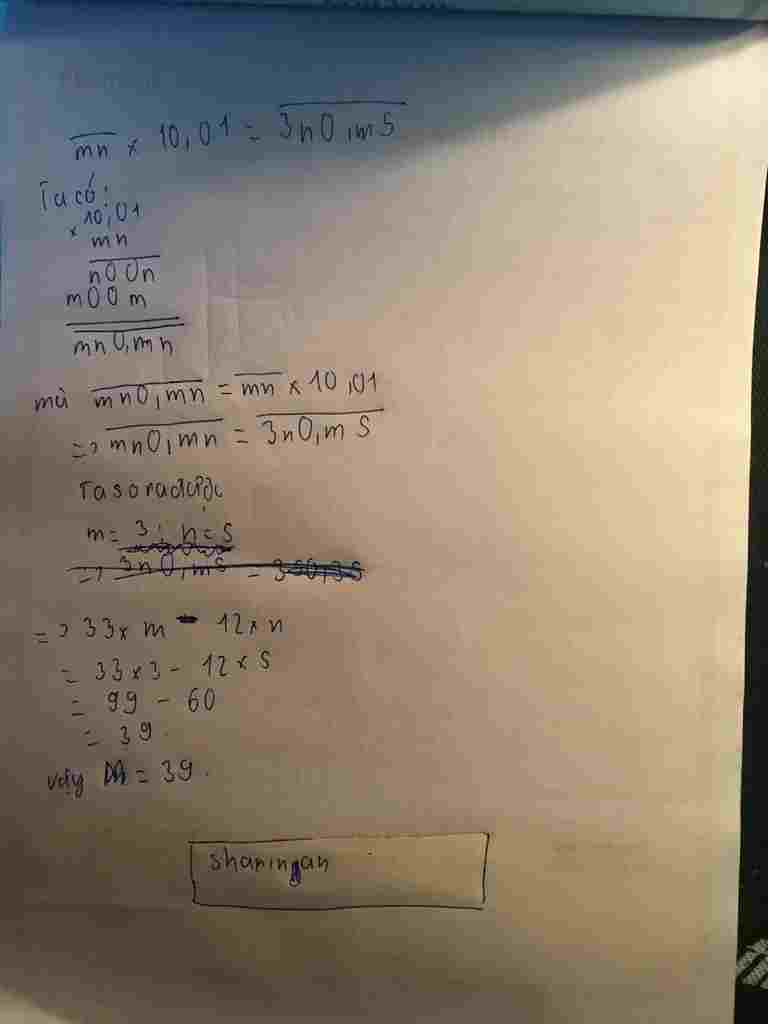 mn × 10,01 = 3n0,m5
Ta có:
× 10,01
mn
n00n
m00m
mn0,mn
mà mn0,mn = mn × 10,01
=> mn0,mn = 3n0,m5
m= 3; n=5
=> 3n0,m5 = 350,35
=> 33× m - 12×n
= 33×3 - 12×5
= 99 - 60
= 39.
vậy M = 39.
Sharingan